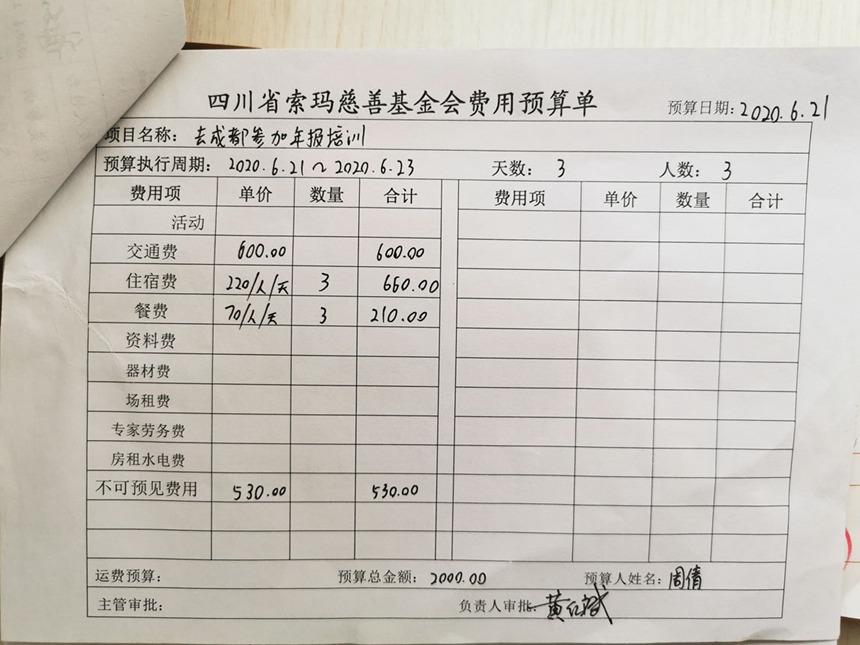 四川省索玛慈善基金会费用预算单
预算日期: 2020.6.21
项目名称: 去成都参加年报培训
预算执行周期: 2020.6.21 ~ 2020.6.23 天数: 3 人数: 3
费用项 单价 数量 合计 费用项 单价 数量 合计
活动
交通费 600.00 600.00
住宿费 220/人/天 3 660.00
餐费 70/人/天 3 210.00
资料费
器材费
场租费
专家劳务费
房租水电费
不可预见费用 530.00 530.00
运费预算: 预算总金额: 2000.00 预算人姓名: 周倩
主管审批: 负责人审批: